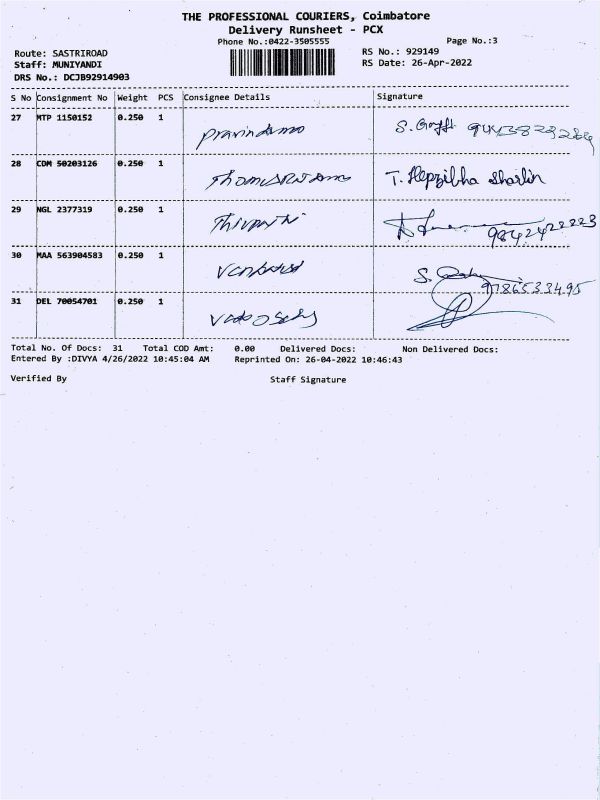 THE PROFESSIONAL COURIERS, Coimbatore
Delivery Runsheet - PCX
Phone No.:0422-3505555
Page No.:3
Route: SASTRIROAD
RS No.: 929149
Staff: MUNIYANDI
RS Date: 26-Apr-2022
DRS No.: DCJB92914903
S No Consignment No Weight PCS Consignee Details Signature
27 MTP 1150152 0.250 1
28 CDM 50203126 0.250 1 T. Hepzibha Sharlin
29 NGL 2377319 0.250 1 9842422223
30 MAA 563904583 0.250 1 S. 9786533495
31 DEL 70054701 0.250 1
Total No. Of Docs: 31 Total COD Amt: 0.00 Delivered Docs: Non Delivered Docs:
Entered By :DIVYA 4/26/2022 10:45:04 AM Reprinted On: 26-04-2022 10:46:43
Verified By Staff Signature